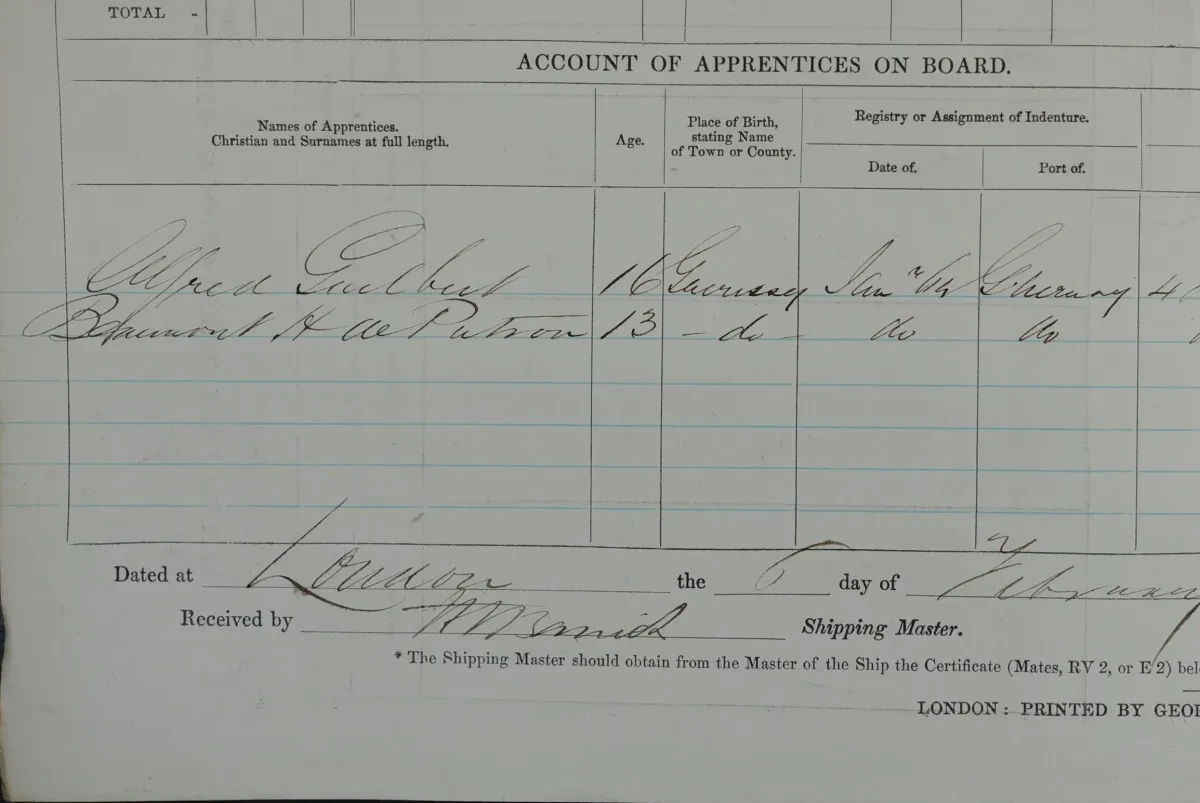 TOTAL -
ACCOUNT OF APPRENTICES ON BOARD.
Names of Apprentices.
Christian and Surnames at full length.
Age.
Place of Birth,
stating Name
of Town or County.
Registry or Assignment of Indenture.
Date of.
Port of.
Alfred Guilbert 16 Guernsey Jany 64 Guernsey 4
Beaumont H de Putron 13 - do - do do
Dated at London the 6 day of February
Received by Shipping Master.
* The Shipping Master should obtain from the Master of the Ship the Certificate (Mates, RV 2, or E 2) bel
LONDON: PRINTED BY GEOR